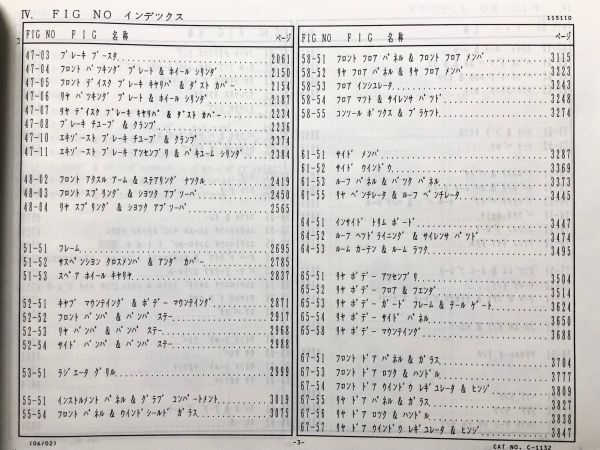 Ⅳ. FIG NO インデックス
115110
FIG NO FIG 名称 ページ
47-03 ブレーキ ブースタ 2061
47-04 フロント バッキング プレート & ホイール シリンダ 2150
47-05 フロント ディスク ブレーキ キヤリパ & ダスト カバー 2154
47-06 リヤ バッキング プレート & ホイール シリンダ 2187
47-07 リヤ ディスク ブレーキ キヤリパ & ダスト カバー 2234
47-08 ブレーキ チューブ & クランプ 2236
47-10 エキゾースト ブレーキ チューブ & クランプ 2374
47-11 エキゾースト ブレーキ アッセンブリ & バキューム シリンダ 2384
48-02 フロント アクスル アーム & ステアリング ナックル 2419
48-03 フロント スプリング & ショック アブソーバ 2450
48-04 リヤ スプリング & ショック アブソーバ 2565
51-51 フレーム 2695
51-52 サスペンション クロスメンバ & アンダ カバー 2785
51-53 スペア ホイール キヤリヤ 2837
52-51 キャブ マウンティング & ボデー マウンティング 2871
52-52 フロント バンパ & バンパ ステー 2917
52-53 リヤ バンパ & バンパ ステー 2968
52-54 サイド バンパ & バンパ ステー 2988
53-51 ラジエータ グリル 2999
55-51 インストルメント パネル & グラブ コンパートメント 3019
55-54 フロント パネル & ウインドシールド ガラス 3075
FIG NO FIG 名称 ページ
58-51 フロント フロア パネル & フロント フロア メンバ 3115
58-52 リヤ フロア パネル & リヤ フロア メンバ 3223
58-53 フロア インシュレータ 3243
58-54 フロア マット & サイレンサ パッド 3248
58-55 コンソール ボックス & ブラケット 3274
61-51 サイド メンバ 3287
61-52 サイド ウインドウ 3369
61-53 ルーフ パネル & バック パネル 3373
61-55 リヤ ベンチレータ & ルーフ ベンチレータ 3445
64-51 インサイド トリム ボード 3447
64-52 ルーフ ヘッドライニング & サイレンサ パッド 3474
64-53 ルーム カーテン & ルーム ラック 3495
65-51 リヤ ボデー アッセンブリ 3504
65-52 リヤ ボデー フロア & フェンダ 3514
65-53 リヤ ボデー ガード フレーム & テール ゲート 3624
65-54 リヤ ボデー サイド パネル 3650
65-58 リヤ ボデー マウンティング 3688
67-51 フロント ドア パネル & ガラス 3704
67-53 フロント ドア ロック & ハンドル 3777
67-54 フロント ドア ウインドウ レギュレータ & ヒンジ 3809
67-55 リヤ ドア パネル & ガラス 3827
67-56 リヤ ドア ロック & ハンドル 3838
67-57 リヤ ドア ウインドウ レギュレータ & ヒンジ 3847
(06/02)
-3-
CAT NO. C-1132